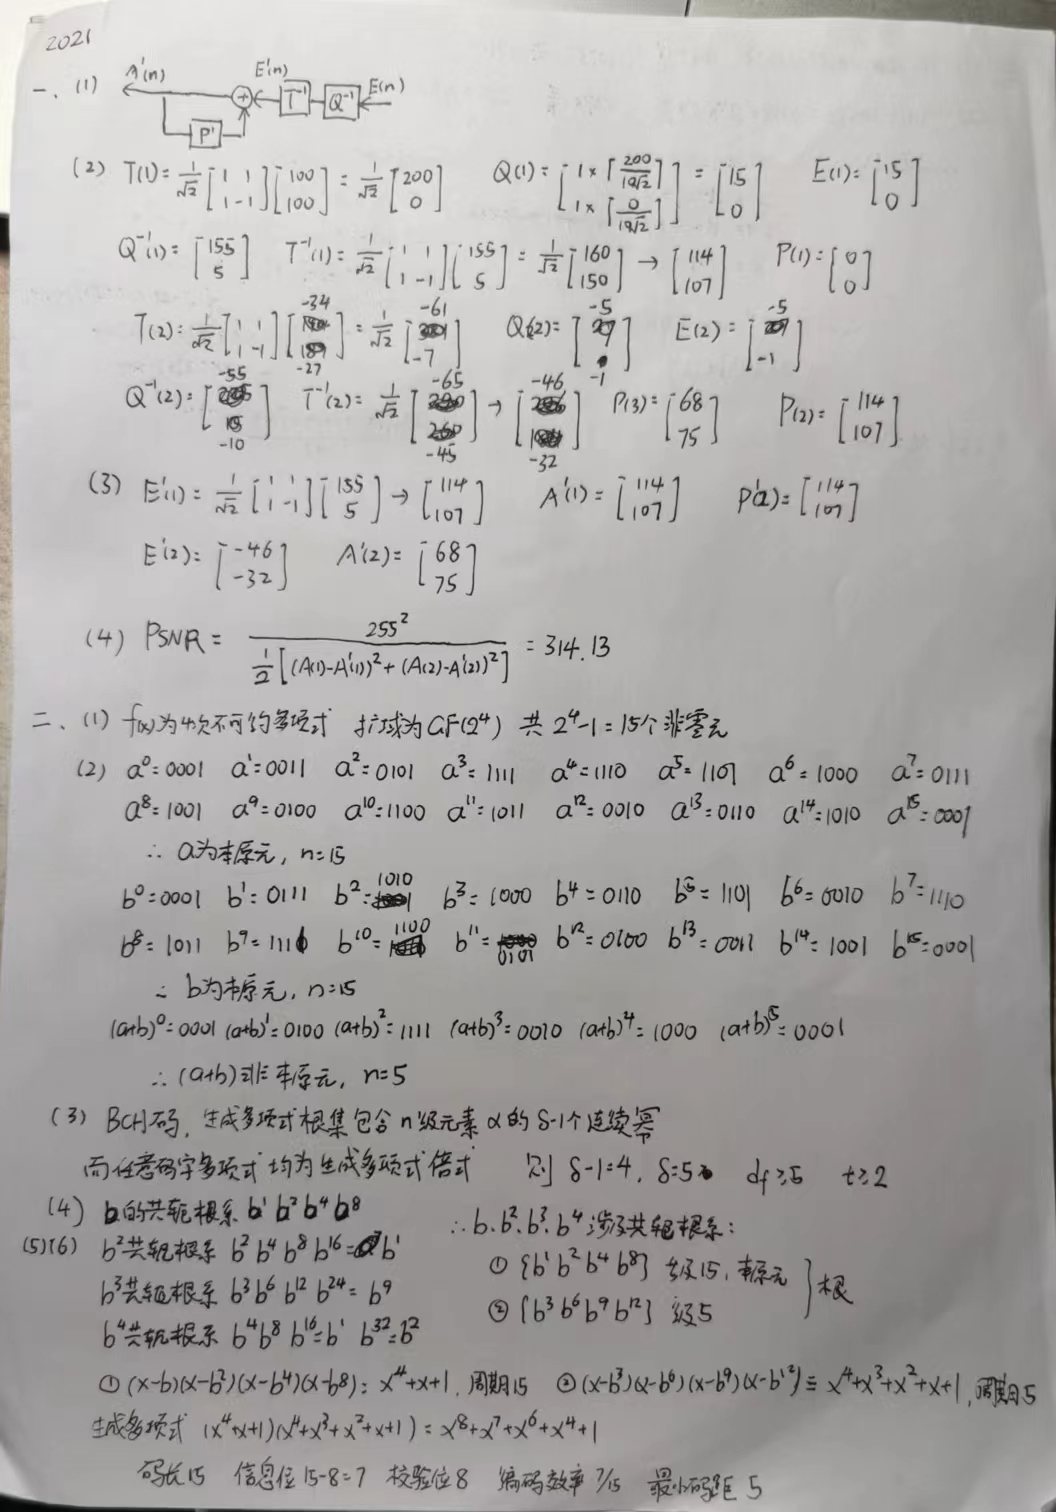 2021
一、(1) A'(n) E'(n) E(n) + T⁻¹ Q⁻¹ P'
(2) T(1)= 1/√2 [1 1; 1 -1] [100; 100] = 1/√2 [200; 0] Q(1)= [1×⌈200/10√2⌉; 1×⌈0/10√2⌉] = [15; 0] E(1)= [15; 0]
Q⁻¹(1)= [155; 5] T⁻¹(1)= 1/√2 [1 1; 1 -1] [155; 5] = 1/√2 [160; 150] → [114; 107] P(1)= [0; 0]
T(2)= 1/√2 [1 1; 1 -1] [-34; -27] = 1/√2 [-61; -7] Q(2)= [-5; -1] E(2)= [-5; -1]
Q⁻¹(2)= [-55; -10] T⁻¹(2)= 1/√2 [-65; -45] → [-46; -32] P(3)= [68; 75] P(2)= [114; 107]
(3) E'(1)= 1/√2 [1 1; 1 -1] [155; 5] → [114; 107] A'(1)= [114; 107] P'(2)= [114; 107]
E'(2)= [-46; -32] A'(2)= [68; 75]
(4) PSNR = 255² / ½[(A(1)-A'(1))²+(A(2)-A'(2))²] = 314.13
二、(1) f(x)为4次不可约多项式 扩域为GF(2⁴) 共2⁴-1=15个非零元
(2) a⁰=0001 a¹=0011 a²=0101 a³=1111 a⁴=1110 a⁵=1101 a⁶=1000 a⁷=0111
a⁸=1001 a⁹=0100 a¹⁰=1100 a¹¹=1011 a¹²=0010 a¹³=0110 a¹⁴=1010 a¹⁵=0001
∴ a为本原元, n=15
b⁰=0001 b¹=0111 b²=1010 b³=1000 b⁴=0110 b⁵=1101 b⁶=0010 b⁷=1110
b⁸=1011 b⁹=111 b¹⁰=1100 b¹¹=0101 b¹²=0100 b¹³=0011 b¹⁴=1001 b¹⁵=0001
∴ b为本原元, n=15
(a+b)⁰=0001 (a+b)¹=0100 (a+b)²=1111 (a+b)³=0010 (a+b)⁴=1000 (a+b)⁵=0001
∴ (a+b)非本原元, n=5
(3) BCH码, 生成多项式根集包含n级元素α的δ-1个连续幂
而任意码字多项式均为生成多项式倍式 则 δ-1=4, δ=5 df≥5 t≥2
(4) b的共轭根系 b¹ b² b⁴ b⁸
∴ b、b²、b³、b⁴涉及共轭根系:
(5)(6) b²共轭根系 b² b⁴ b⁸ b¹⁶=b¹
① {b¹ b² b⁴ b⁸} 级15, 本原元
b³共轭根系 b³ b⁶ b¹² b²⁴=b⁹
② {b³ b⁶ b⁹ b¹²} 级5 } 根
b⁴共轭根系 b⁴ b⁸ b¹⁶=b¹ b³²=b²
① (x-b)(x-b²)(x-b⁴)(x-b⁸)= x⁴+x+1, 周期15 ② (x-b³)(x-b⁶)(x-b⁹)(x-b¹²)= x⁴+x³+x²+x+1, 周期5
生成多项式 (x⁴+x+1)(x⁴+x³+x²+x+1)=x⁸+x⁷+x⁶+x⁴+1
码长15 信息位15-8=7 校验位8 编码效率7/15 最小码距5